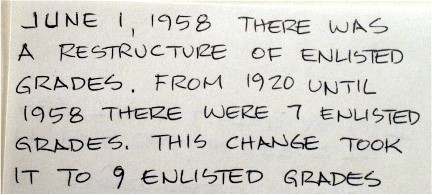 JUNE 1, 1958 THERE WAS
A RESTRUCTURE OF ENLISTED
GRADES. FROM 1920 UNTIL
1958 THERE WERE 7 ENLISTED
GRADES. THIS CHANGE TOOK
IT TO 9 ENLISTED GRADES